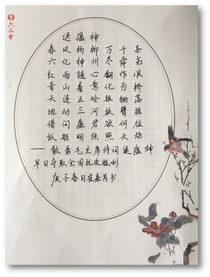 六品堂
送瘟神
春风杨柳万千条
六亿神州尽舜尧
红雨随心翻作浪
青山着意化为桥
天连五岭银锄落
地动三河铁臂摇
借问瘟君欲何往
纸船明烛照天烧
——敬录毛主席诗词送瘟神
早日夺取全国抗疫胜利
庚子春月书